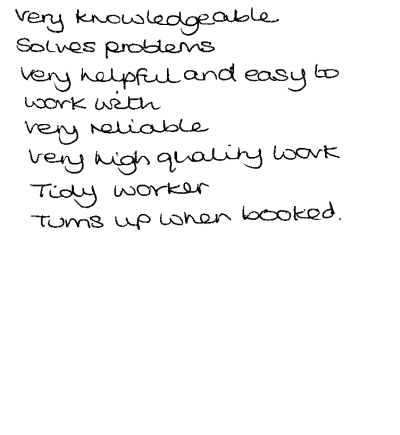 Very knowledgeable
Solves problems
Very helpful and easy to
work with
Very reliable
Very high quality work
Tidy worker
Turns up when booked.